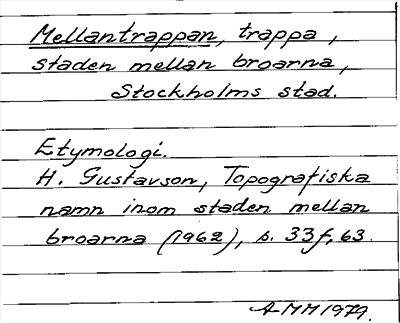 Mellantrappan, trappa,
staden mellan broarna,
Stockholms stad.
Etymologi.
H. Gustavson, Topografiska
namn inom staden mellan
broarna (1962), s. 33f, 63.
AMM 1979.